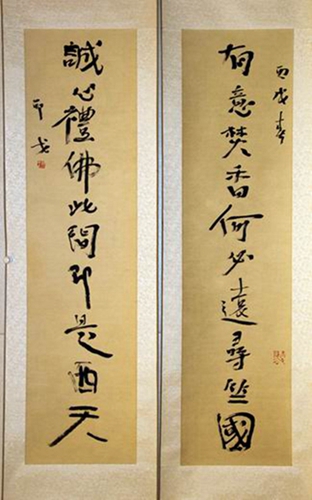 丙戌春
有意焚香何必遠尋竺國
誠心禮佛此間即是西天